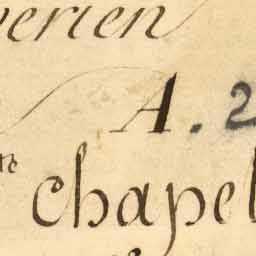 verien
A. 2
te chapel